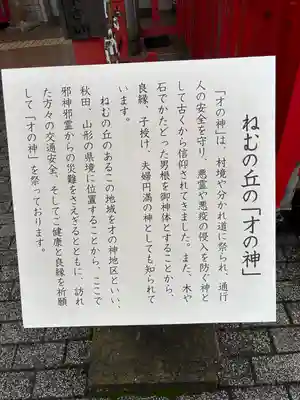 ねむの丘の「才の神」
「才の神」は、村境や分かれ道に祭られ、通行
人の安全を守り、悪霊や悪疫の侵入を防ぐ神と
して古くから信仰されてきました。また、木や
石でかたどった男根を御神体とすることから、
良縁、子授け、夫婦円満の神としても知られて
います。
ねむの丘のあるこの地域を才の神地区といい、
秋田、山形の県境に位置することから、ここで
邪神邪霊からの災難をさえぎるとともに、訪れ
た方々の交通安全、そしてご健康と良縁を祈願
して「才の神」を祭っております。